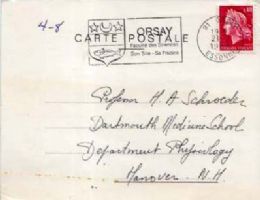 4-8
ORSAY
Faculté des Sciences
Son Site - Sa Piscine
CARTE POSTALE
91
ESSONNE
Professor H A Schroeder
Dartmouth Medicine School
Department Physiology
Hanover - N.H.